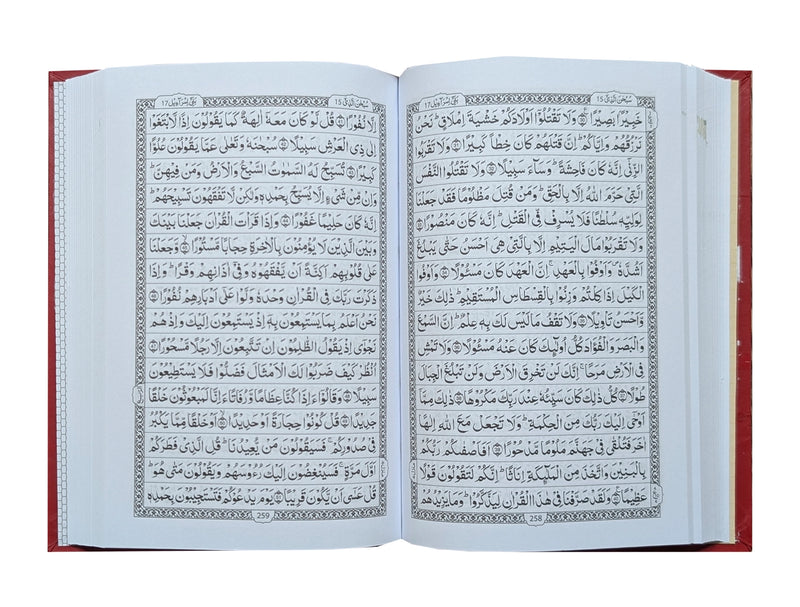 سبحن الذی 15
بنی اسرآءیل 17
خَبِیْرًۢا بَصِیْرًا ۠ وَلَا تَقْتُلُوْۤا اَوْلَادَكُمْ خَشْیَةَ اِمْلَاقٍ ؕ نَحْنُ
نَرْزُقُهُمْ وَاِیَّاكُمْ ؕ اِنَّ قَتْلَهُمْ كَانَ خِطْاً كَبِیْرًا وَلَا تَقْرَبُوا
الزِّنٰۤی اِنَّهٗ كَانَ فَاحِشَةً ؕ وَسَآءَ سَبِیْلًا وَلَا تَقْتُلُوا النَّفْسَ
الَّتِیْ حَرَّمَ اللّٰهُ اِلَّا بِالْحَقِّ ؕ وَمَنْ قُتِلَ مَظْلُوْمًا فَقَدْ جَعَلْنَا
لِوَلِیِّهٖ سُلْطٰنًا فَلَا یُسْرِفْ فِّی الْقَتْلِ ؕ اِنَّهٗ كَانَ مَنْصُوْرًا
وَلَا تَقْرَبُوْا مَالَ الْیَتِیْمِ اِلَّا بِالَّتِیْ هِیَ اَحْسَنُ حَتّٰی یَبْلُغَ
اَشُدَّهٗ ۪ وَاَوْفُوْا بِالْعَهْدِ ۚ اِنَّ الْعَهْدَ كَانَ مَسْـُٔوْلًا وَاَوْفُوا
الْكَیْلَ اِذَا كِلْتُمْ وَزِنُوْا بِالْقِسْطَاسِ الْمُسْتَقِیْمِ ؕ ذٰلِكَ خَیْرٌ
وَّاَحْسَنُ تَاْوِیْلًا وَلَا تَقْفُ مَا لَیْسَ لَكَ بِهٖ عِلْمٌ ؕ اِنَّ السَّمْعَ
وَالْبَصَرَ وَالْفُؤَادَ كُلُّ اُولٰٓئِكَ كَانَ عَنْهُ مَسْـُٔوْلًا وَلَا تَمْشِ
فِی الْاَرْضِ مَرَحًا ۚ اِنَّكَ لَنْ تَخْرِقَ الْاَرْضَ وَلَنْ تَبْلُغَ الْجِبَالَ
طُوْلًا كُلُّ ذٰلِكَ كَانَ سَیِّئُهٗ عِنْدَ رَبِّكَ مَكْرُوْهًا ذٰلِكَ مِمَّاۤ
اَوْحٰۤی اِلَیْكَ رَبُّكَ مِنَ الْحِكْمَةِ ؕ وَلَا تَجْعَلْ مَعَ اللّٰهِ اِلٰهًا
اٰخَرَ فَتُلْقٰی فِیْ جَهَنَّمَ مَلُوْمًا مَّدْحُوْرًا اَفَاَصْفٰىكُمْ رَبُّكُمْ
بِالْبَنِیْنَ وَاتَّخَذَ مِنَ الْمَلٰٓئِكَةِ اِنَاثًا ؕ اِنَّكُمْ لَتَقُوْلُوْنَ قَوْلًا
عَظِیْمًا وَلَقَدْ صَرَّفْنَا فِیْ هٰذَا الْقُرْاٰنِ لِیَذَّكَّرُوْا ؕ وَمَا یَزِیْدُهُمْ
258
سبحن الذی 15
بنی اسرآءیل 17
اِلَّا نُفُوْرًا قُلْ لَّوْ كَانَ مَعَهٗۤ اٰلِهَةٌ كَمَا یَقُوْلُوْنَ اِذًا لَّابْتَغَوْا
اِلٰی ذِی الْعَرْشِ سَبِیْلًا سُبْحٰنَهٗ وَتَعٰلٰی عَمَّا یَقُوْلُوْنَ عُلُوًّا
كَبِیْرًا تُسَبِّحُ لَهُ السَّمٰوٰتُ السَّبْعُ وَالْاَرْضُ وَمَنْ فِیْهِنَّ ؕ
وَاِنْ مِّنْ شَیْءٍ اِلَّا یُسَبِّحُ بِحَمْدِهٖ وَلٰكِنْ لَّا تَفْقَهُوْنَ تَسْبِیْحَهُمْ ؕ
اِنَّهٗ كَانَ حَلِیْمًا غَفُوْرًا وَاِذَا قَرَاْتَ الْقُرْاٰنَ جَعَلْنَا بَیْنَكَ
وَبَیْنَ الَّذِیْنَ لَا یُؤْمِنُوْنَ بِالْاٰخِرَةِ حِجَابًا مَّسْتُوْرًا وَّجَعَلْنَا
عَلٰی قُلُوْبِهِمْ اَكِنَّةً اَنْ یَّفْقَهُوْهُ وَفِیْۤ اٰذَانِهِمْ وَقْرًا ؕ وَاِذَا
ذَكَرْتَ رَبَّكَ فِی الْقُرْاٰنِ وَحْدَهٗ وَلَّوْا عَلٰۤی اَدْبَارِهِمْ نُفُوْرًا
نَحْنُ اَعْلَمُ بِمَا یَسْتَمِعُوْنَ بِهٖۤ اِذْ یَسْتَمِعُوْنَ اِلَیْكَ وَاِذْ هُمْ
نَجْوٰۤی اِذْ یَقُوْلُ الظّٰلِمُوْنَ اِنْ تَتَّبِعُوْنَ اِلَّا رَجُلًا مَّسْحُوْرًا
اُنْظُرْ كَیْفَ ضَرَبُوْا لَكَ الْاَمْثَالَ فَضَلُّوْا فَلَا یَسْتَطِیْعُوْنَ
سَبِیْلًا وَقَالُوْۤا ءَاِذَا كُنَّا عِظَامًا وَّرُفَاتًا ءَاِنَّا لَمَبْعُوْثُوْنَ خَلْقًا
جَدِیْدًا قُلْ كُوْنُوْا حِجَارَةً اَوْ حَدِیْدًا اَوْ خَلْقًا مِّمَّا یَكْبُرُ
فِیْ صُدُوْرِكُمْ ۚ فَسَیَقُوْلُوْنَ مَنْ یُّعِیْدُنَا ؕ قُلِ الَّذِیْ فَطَرَكُمْ
اَوَّلَ مَرَّةٍ ۚ فَسَیُنْغِضُوْنَ اِلَیْكَ رُءُوْسَهُمْ وَیَقُوْلُوْنَ مَتٰی هُوَ ؕ
قُلْ عَسٰۤی اَنْ یَّكُوْنَ قَرِیْبًا یَوْمَ یَدْعُوْكُمْ فَتَسْتَجِیْبُوْنَ بِحَمْدِهٖ
259